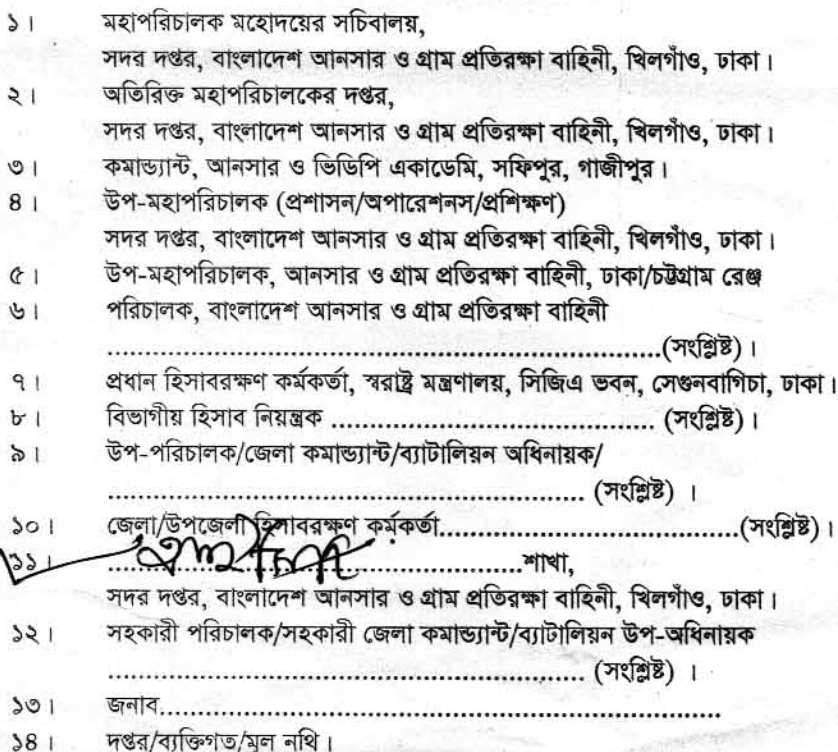 ১। মহাপরিচালক মহোদয়ের সচিবালয়,
সদর দপ্তর, বাংলাদেশ আনসার ও গ্রাম প্রতিরক্ষা বাহিনী, খিলগাঁও, ঢাকা।
২। অতিরিক্ত মহাপরিচালকের দপ্তর,
সদর দপ্তর, বাংলাদেশ আনসার ও গ্রাম প্রতিরক্ষা বাহিনী, খিলগাঁও, ঢাকা।
৩। কমান্ড্যান্ট, আনসার ও ভিডিপি একাডেমি, সফিপুর, গাজীপুর।
৪। উপ-মহাপরিচালক (প্রশাসন/অপারেশনস/প্রশিক্ষণ)
সদর দপ্তর, বাংলাদেশ আনসার ও গ্রাম প্রতিরক্ষা বাহিনী, খিলগাঁও, ঢাকা।
৫। উপ-মহাপরিচালক, আনসার ও গ্রাম প্রতিরক্ষা বাহিনী, ঢাকা/চট্টগ্রাম রেঞ্জ
৬। পরিচালক, বাংলাদেশ আনসার ও গ্রাম প্রতিরক্ষা বাহিনী
.................................................................(সংশ্লিষ্ট)।
৭। প্রধান হিসাবরক্ষণ কর্মকর্তা, স্বরাষ্ট্র মন্ত্রণালয়, সিজিএ ভবন, সেগুনবাগিচা, ঢাকা।
৮। বিভাগীয় হিসাব নিয়ন্ত্রক ...................................... (সংশ্লিষ্ট)।
৯। উপ-পরিচালক/জেলা কমান্ড্যান্ট/ব্যাটালিয়ন অধিনায়ক/
........................................................ (সংশ্লিষ্ট) ।
১০। জেলা/উপজেলা হিসাবরক্ষণ কর্মকর্তা...................................(সংশ্লিষ্ট)।
১১। .................................................শাখা,
সদর দপ্তর, বাংলাদেশ আনসার ও গ্রাম প্রতিরক্ষা বাহিনী, খিলগাঁও, ঢাকা।
১২। সহকারী পরিচালক/সহকারী জেলা কমান্ড্যান্ট/ব্যাটালিয়ন উপ-অধিনায়ক
........................................................ (সংশ্লিষ্ট) ।
১৩। জনাব..................................................................
১৪। দপ্তর/ব্যক্তিগত/মূল নথি।